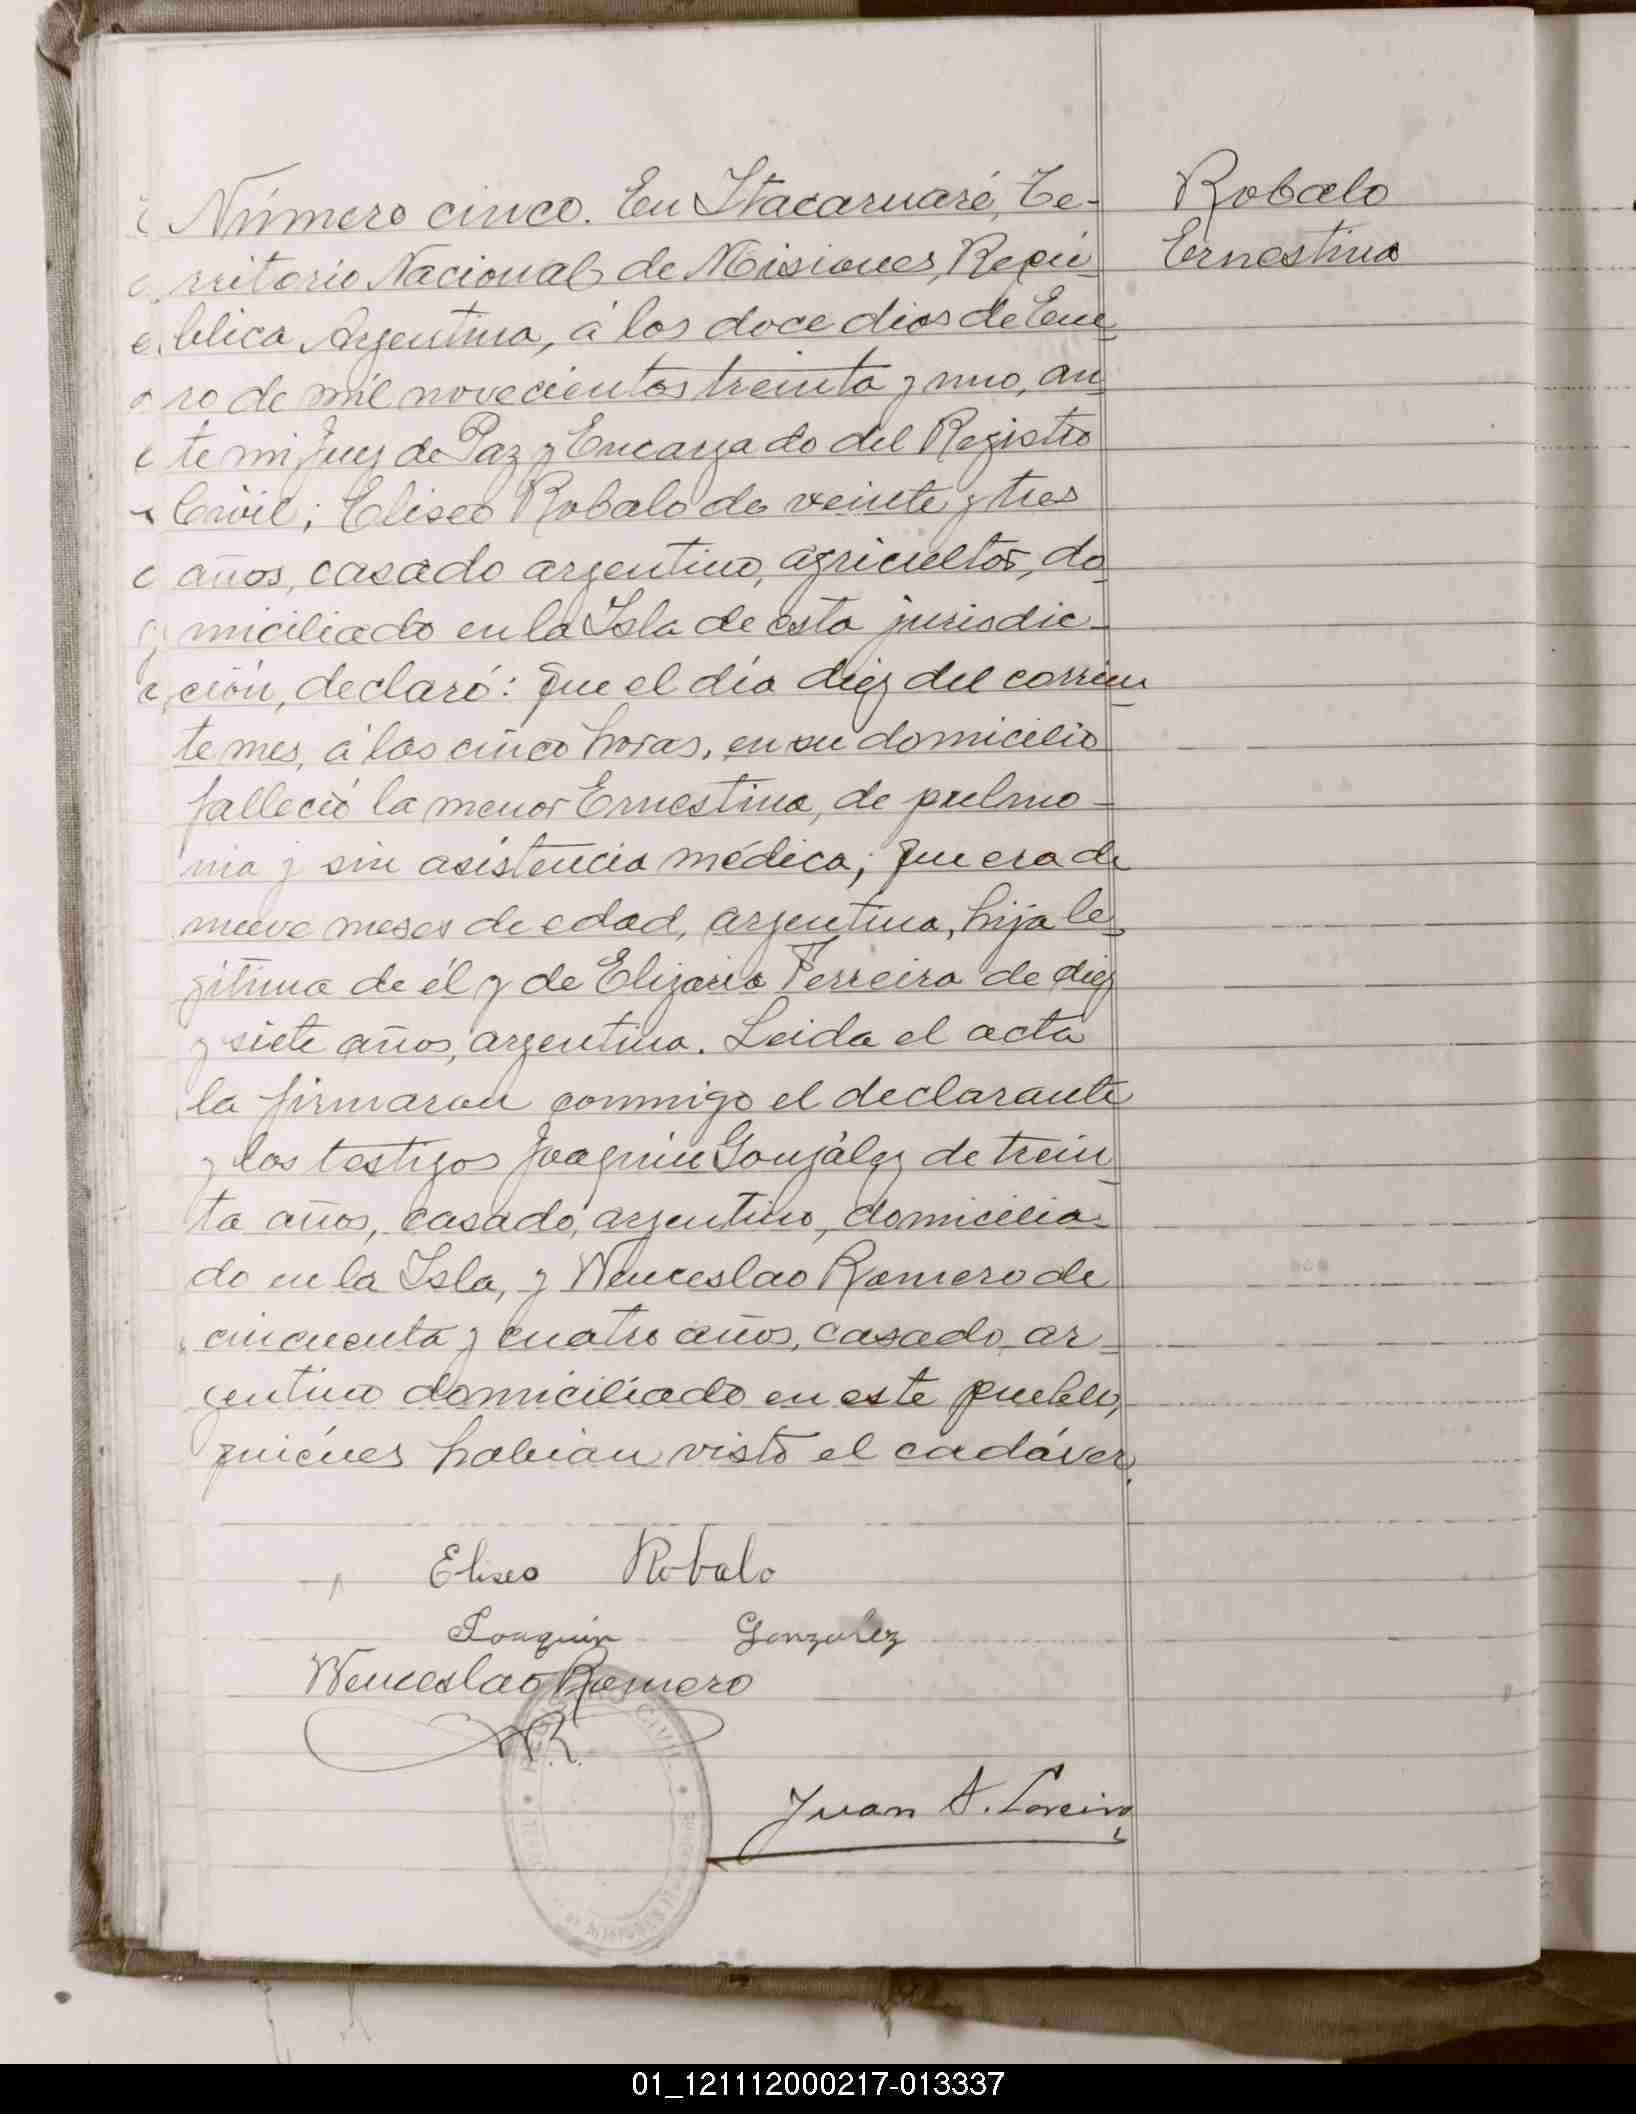 Robalo
Ernestina
Número cinco. En Itacaruaré, Te-
rritorio Nacional de Misiones, Repú-
blica Argentina, á los doce dias de Ene-
ro de mil novecientos treinta y uno, an-
te mi Juez de Paz y Encargado del Registro
Civil; Eliseo Robalo de veinte y tres
años, casado argentino, agricultor, do-
miciliado en la Isla de esta jurisdic-
ción, declaró: Que el día diez del corrien-
te mes, á las cinco horas, en su domicilio
falleció la menor Ernestina, de pulmo-
nia y sin asistencia médica; que era de
nueve meses de edad, argentina, hija le-
gitima de él y de Elizaria Ferreira de diez
y siete años, argentina. Leida el acta
la firmaron conmigo el declarante
y los testigos Joaquín González de trein-
ta años, casado, argentino, domicilia-
do en la Isla, y Wenceslao Romero de
cincuenta y cuatro años, casado, ar-
gentino domiciliado en este pueblo,
quiénes habian visto el cadáver.
Eliseo Robalo
Joaquin Gonzalez
Wenceslao Romero
WR.
CIVIL
Juan A.
01_121112000217-013337